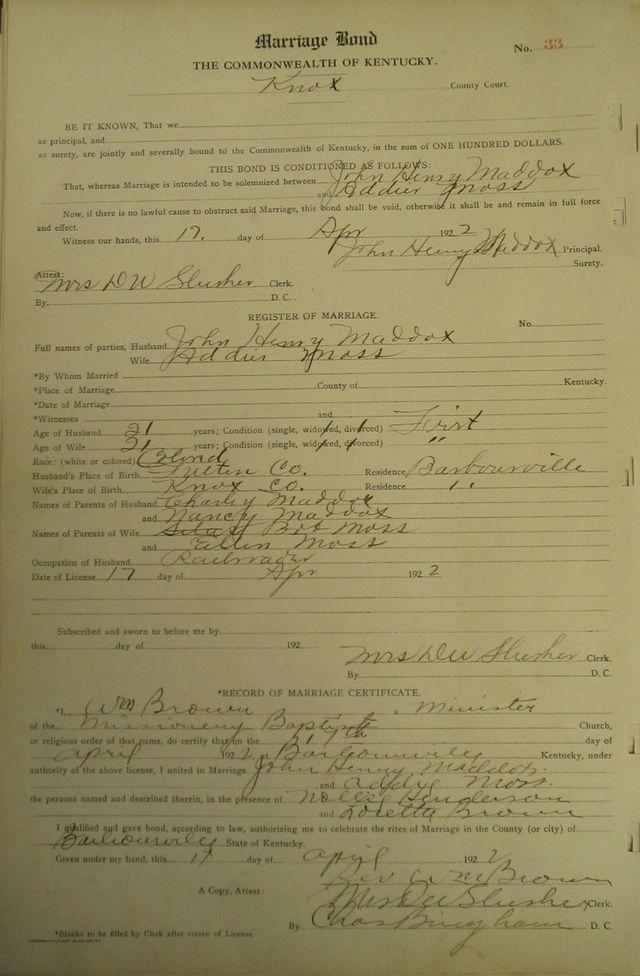 Marriage Bond
No. 33
THE COMMONWEALTH OF KENTUCKY.
Knox County Court.
BE IT KNOWN, That we
as principal, and
as surety, are jointly and severally bound to the Commonwealth of Kentucky, in the sum of ONE HUNDRED DOLLARS.
THIS BOND IS CONDITIONED AS FOLLOWS:
That, whereas Marriage is intended to be solemnized between John Henry Maddox
and Addier Moss
Now, if there is no lawful cause to obstruct said Marriage, this bond shall be void, otherwise it shall be and remain in full force
and effect.
Witness our hands, this 17. day of Apr 1922
John Henry Maddox Principal.
Surety.
Attest:
Mrs D W Slusher Clerk.
By D. C.
REGISTER OF MARRIAGE.
No.
Full names of parties, Husband John Henry Maddox
Wife Addier Moss
*By Whom Married
*Place of Marriage County of Kentucky.
*Date of Marriage
*Witnesses and
Age of Husband 21 years; Condition (single, widowed, divorced) First
Age of Wife 21 years; Condition (single, widowed, divorced) "
Race: (white or colored) Colord
Husband's Place of Birth Fulten Co. Residence Barbourville
Wife's Place of Birth Knox Co. Residence "
Names of Parents of Husband Charley Maddox
and Nancy Maddox
Names of Parents of Wife Bob Moss
and Ellen Moss
Occupation of Husband Railroader
Date of License 17 day of Apr 1922
Subscribed and sworn to before me by
this day of 192
Mrs D W Slusher Clerk.
By D. C.
*RECORD OF MARRIAGE CERTIFICATE.
*I, Wm Brown a Minister
of the Missionery Baptist Church,
or religious order of that name, do certify that on the 17th day of
April 1922, in Barbourville Kentucky, under
authority of the above license, I united in Marriage John Henry Maddox
and Addye Moss
the persons named and described therein, in the presence of Henderson
and Loretta Brown
I qualified and gave bond, according to law, authorizing me to celebrate the rites of Marriage in the County (or city) of
Barbourville State of Kentucky.
Given under my hand, this 17 day of April 1922
Rev Wm Brown
A Copy, Attest: Mrs D W Slusher Clerk.
By Chas Bingham D. C.
*Blanks to be filled by Clerk after return of License.